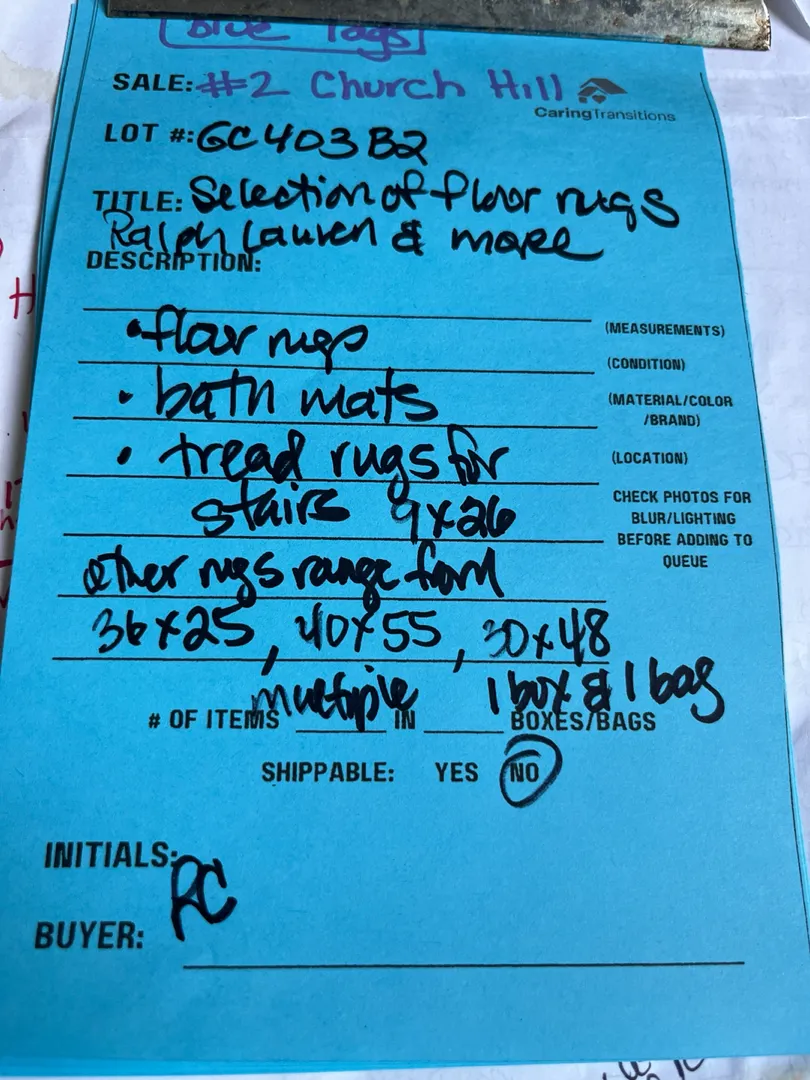 Blue Tags
SALE: #2 Church Hill
CaringTransitions
LOT #: GC403B2
TITLE: Selection of floor rugs
Ralph Lauren & more
DESCRIPTION:
• floor rugs
(MEASUREMENTS)
(CONDITION)
• bath mats
(MATERIAL/COLOR
/BRAND)
• tread rugs for
(LOCATION)
stairs 9x26
CHECK PHOTOS FOR
BLUR/LIGHTING
BEFORE ADDING TO
QUEUE
other rugs range from
36x25, 40x55, 30x48
# OF ITEMS multiple IN 1 box & 1 bag BOXES/BAGS
SHIPPABLE: YES NO
INITIALS: RC
BUYER: